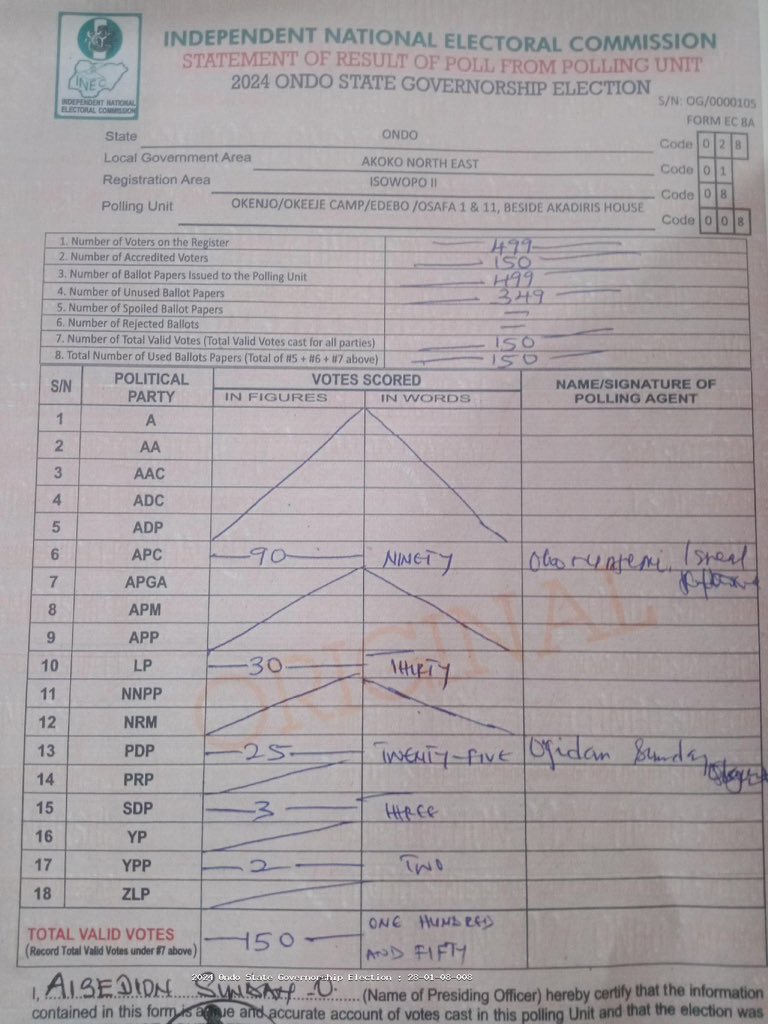 INEC
INDEPENDENT NATIONAL
ELECTORAL COMMISSION
INDEPENDENT NATIONAL ELECTORAL COMMISSION
STATEMENT OF RESULT OF POLL FROM POLLING UNIT
2024 ONDO STATE GOVERNORSHIP ELECTION
S/N: OG/0000105
FORM EC 8A
State ONDO Code 0 2 8
Local Government Area AKOKO NORTH EAST Code 0 1
Registration Area ISOWOPO II Code 0 8
Polling Unit OKENJO/OKEEJE CAMP/EDEBO /OSAFA 1 & 11, BESIDE AKADIRIS HOUSE Code 0 0 8
1. Number of Voters on the Register 499
2. Number of Accredited Voters 150
3. Number of Ballot Papers Issued to the Polling Unit 499
4. Number of Unused Ballot Papers 349
5. Number of Spoiled Ballot Papers —
6. Number of Rejected Ballots —
7. Number of Total Valid Votes (Total Valid Votes cast for all parties) 150
8. Total Number of Used Ballots Papers (Total of #5 + #6 + #7 above) 150
S/N POLITICAL PARTY VOTES SCORED NAME/SIGNATURE OF POLLING AGENT
IN FIGURES IN WORDS
1 A
2 AA
3 AAC
4 ADC
5 ADP
6 APC 90 NINETY
7 APGA
8 APM
9 APP
10 LP 30 THIRTY
11 NNPP
12 NRM
13 PDP 25 TWENTY-FIVE Ogidan Sunday
14 PRP
15 SDP 3 THREE
16 YP
17 YPP 2 TWO
18 ZLP
ORIGINAL
TOTAL VALID VOTES 150 ONE HUNDRED
(Record Total Valid Votes under #7 above) AND FIFTY
2024 Ondo State Governorship Election : 28-01-08-008
I, AIGEDION SUNDAY .U. (Name of Presiding Officer) hereby certify that the information
contained in this form is a true and accurate account of votes cast in this polling Unit and that the election was